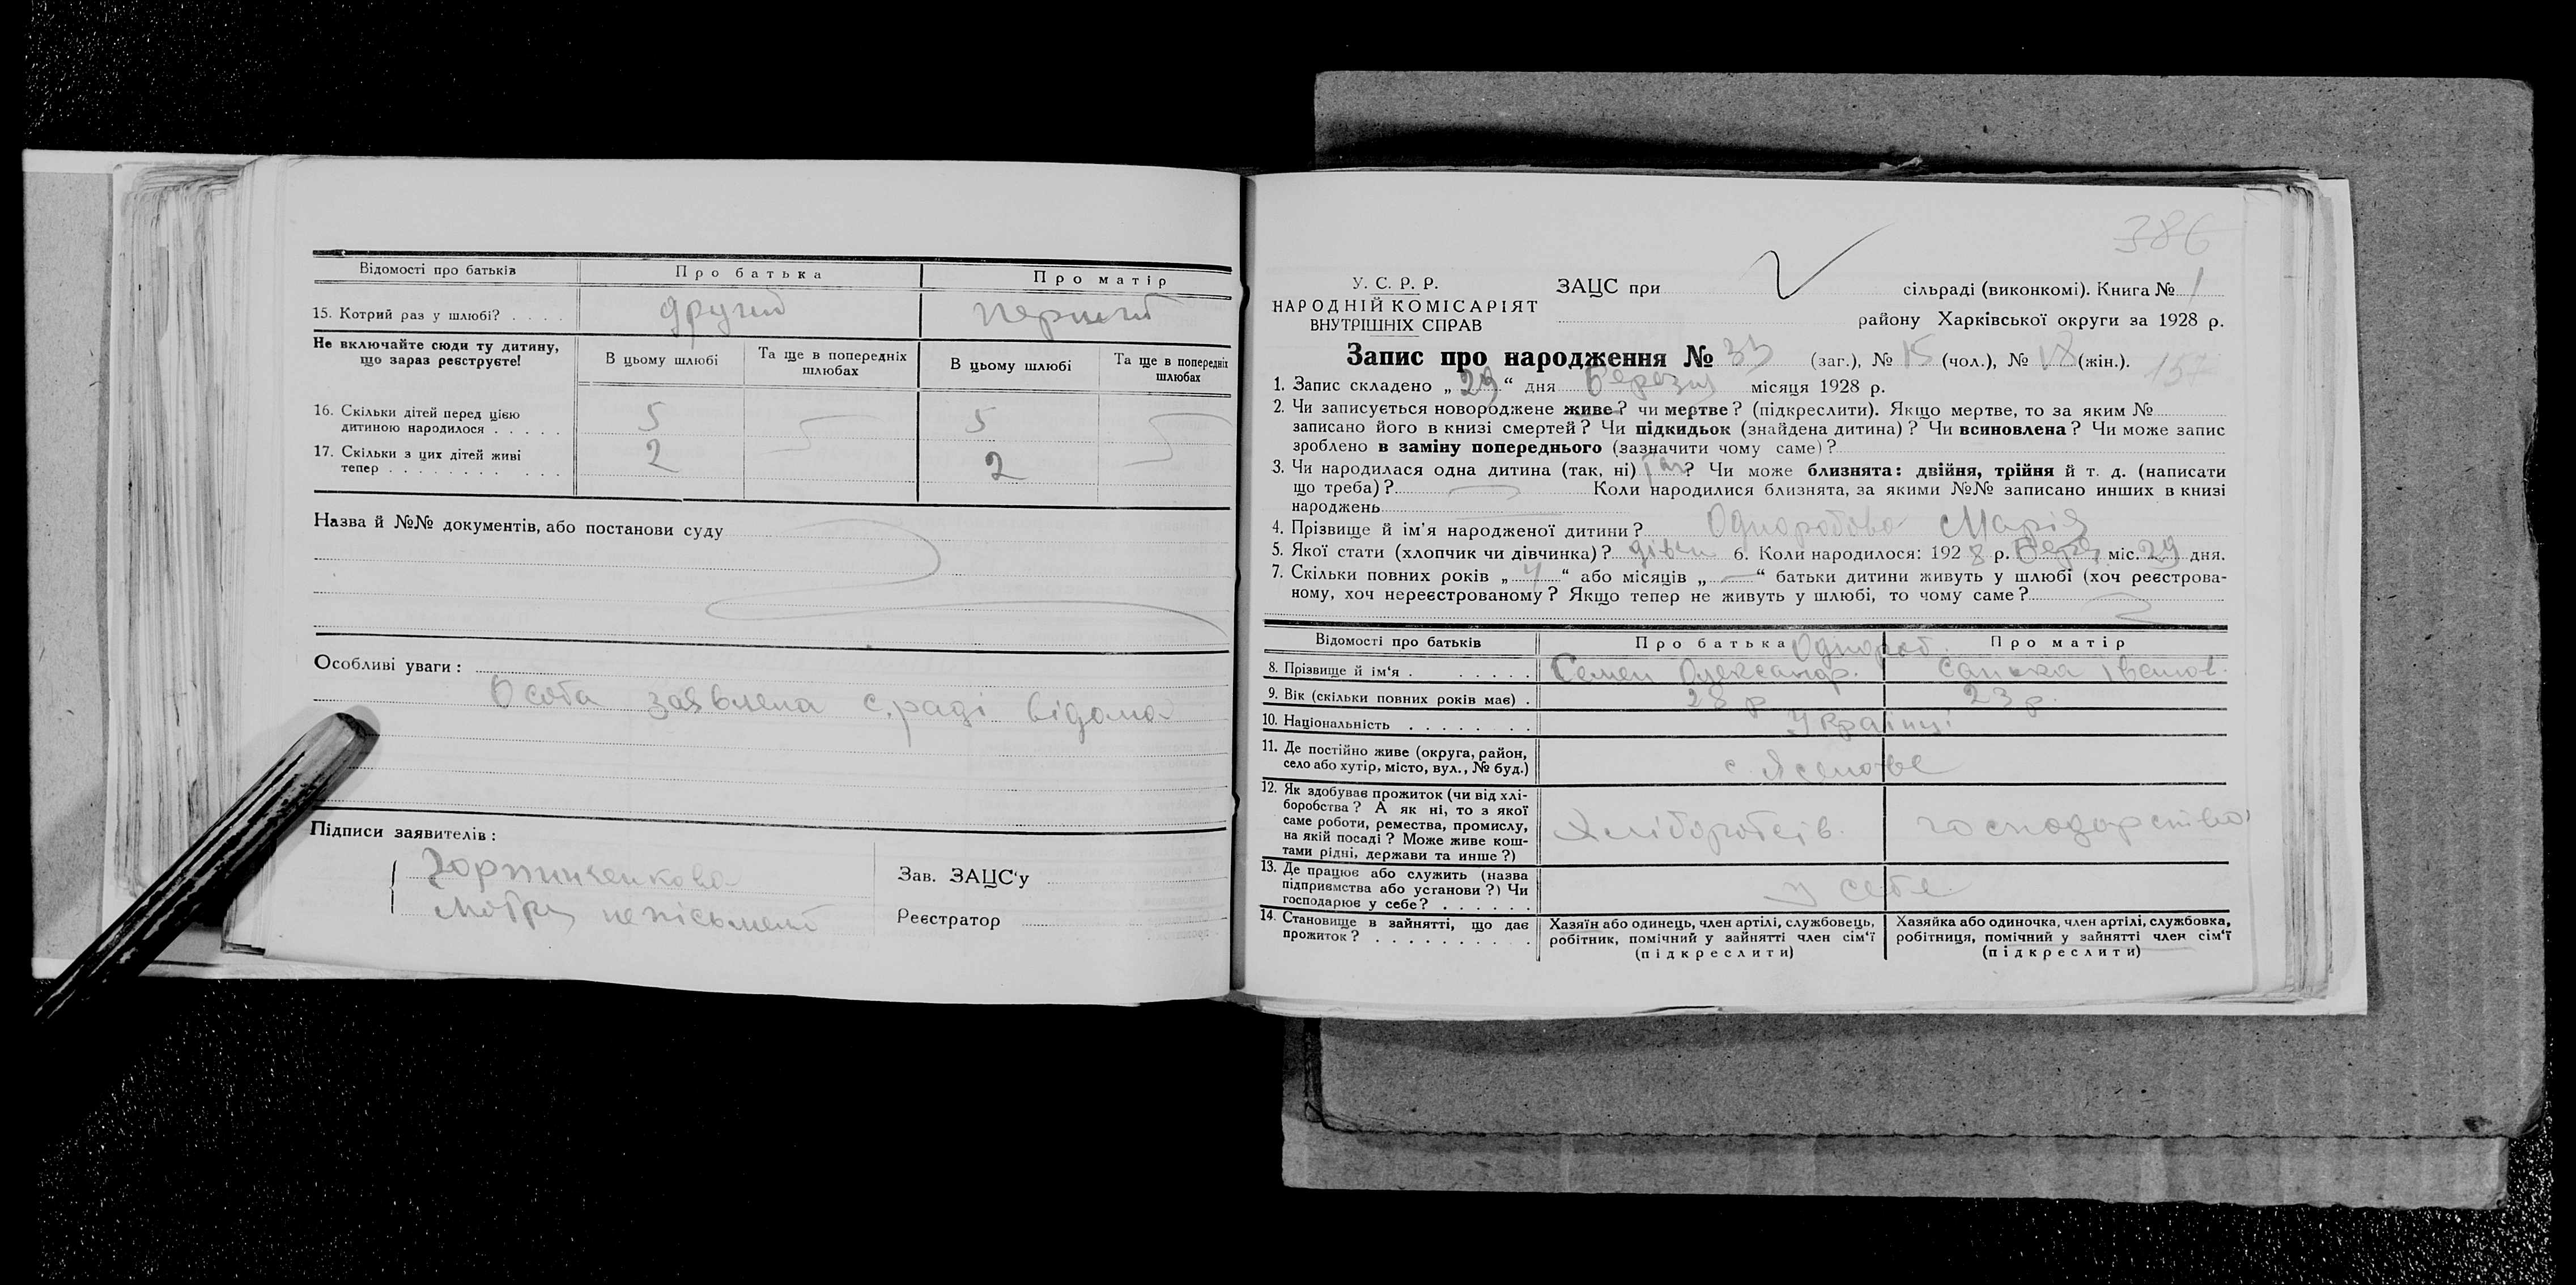 Відомості про батьків Про батька Про матір
15. Котрий раз у шлюбі? . . . . другий перший
Не включайте сюди ту дитину, що зараз реєструєте! В цьому шлюбі Та ще в попередніх шлюбах В цьому шлюбі Та ще в попередніх шлюбах
16. Скільки дітей перед цією
дитиною народилося . . . . . 5 5
17. Скільки з цих дітей живі
тепер . . . . . . . . . . . 2 2
Назва й №№ документів, або постанови суду
Особливі уваги:
Особа заявлена с,раді відома
Підписи заявителів:
Мотря
Зав. ЗАЦС'у
Реєстратор
386
У. С. Р. Р.
НАРОДНІЙ КОМІСАРІЯТ
ВНУТРІШНІХ СПРАВ
ЗАЦС при сільраді (виконкомі). Книга № 1
району Харківської округи за 1928 р.
Запис про народження № 33 (заг.), № 15 (чол.), № 18 (жін.). 157
1. Запис складено „29“ дня Березня місяця 1928 р.
2. Чи записується новороджене живе? чи мертве? (підкреслити). Якщо мертве, то за яким №
записано його в книзі смертей? Чи підкидьок (знайдена дитина)? Чи всиновлена? Чи може запис
зроблено в заміну попереднього (зазначити чому саме)?
3. Чи народилася одна дитина (так, ні) так? Чи може близнята: двійня, трійня й т. д. (написати
що треба)? Коли народилися близнята, за якими №№ записано инших в книзі
народжень
4. Прізвище й ім'я народженої дитини? Одноробова Марія
5. Якої стати (хлопчик чи дівчинка)? дівч 6. Коли народилося: 1928 р. Берез міс. 29 дня.
7. Скільки повних років „4“ або місяців „—“ батьки дитини живуть у шлюбі (хоч реєстрова-
ному, хоч нереєстрованому? Якщо тепер не живуть у шлюбі, то чому саме?
Відомості про батьків Про батька Про матір
Однороб.
8. Прізвище й ім'я . . . . . . . Семен Олександр.
9. Вік (скільки повних років має) . 28 р 23 р.
10. Національність . . . . . . . . Українці
11. Де постійно живе (округа, район,
село або хутір, місто, вул., № буд.) с.
12. Як здобуває прожиток (чи від хлі-
боробства? А як ні, то з якої
саме роботи, ремества, промислу,
на якій посаді? Може живе кош-
тами рідні, держави та инше?) Хліборобств. господарство
13. Де працює або служить (назва
підприємства або установи?) Чи
господарює у себе? . . . . . . У себе
14. Становище в зайнятті, що дає
прожиток? . . . . . . . . . .
Хазяїн або одинець, член артілі, службовець,
робітник, помічний у зайнятті член сім'ї
(підкреслити)
Хазяйка або одиночка, член артілі, службовка,
робітниця, помічний у зайнятті член сім'ї
(підкреслити)